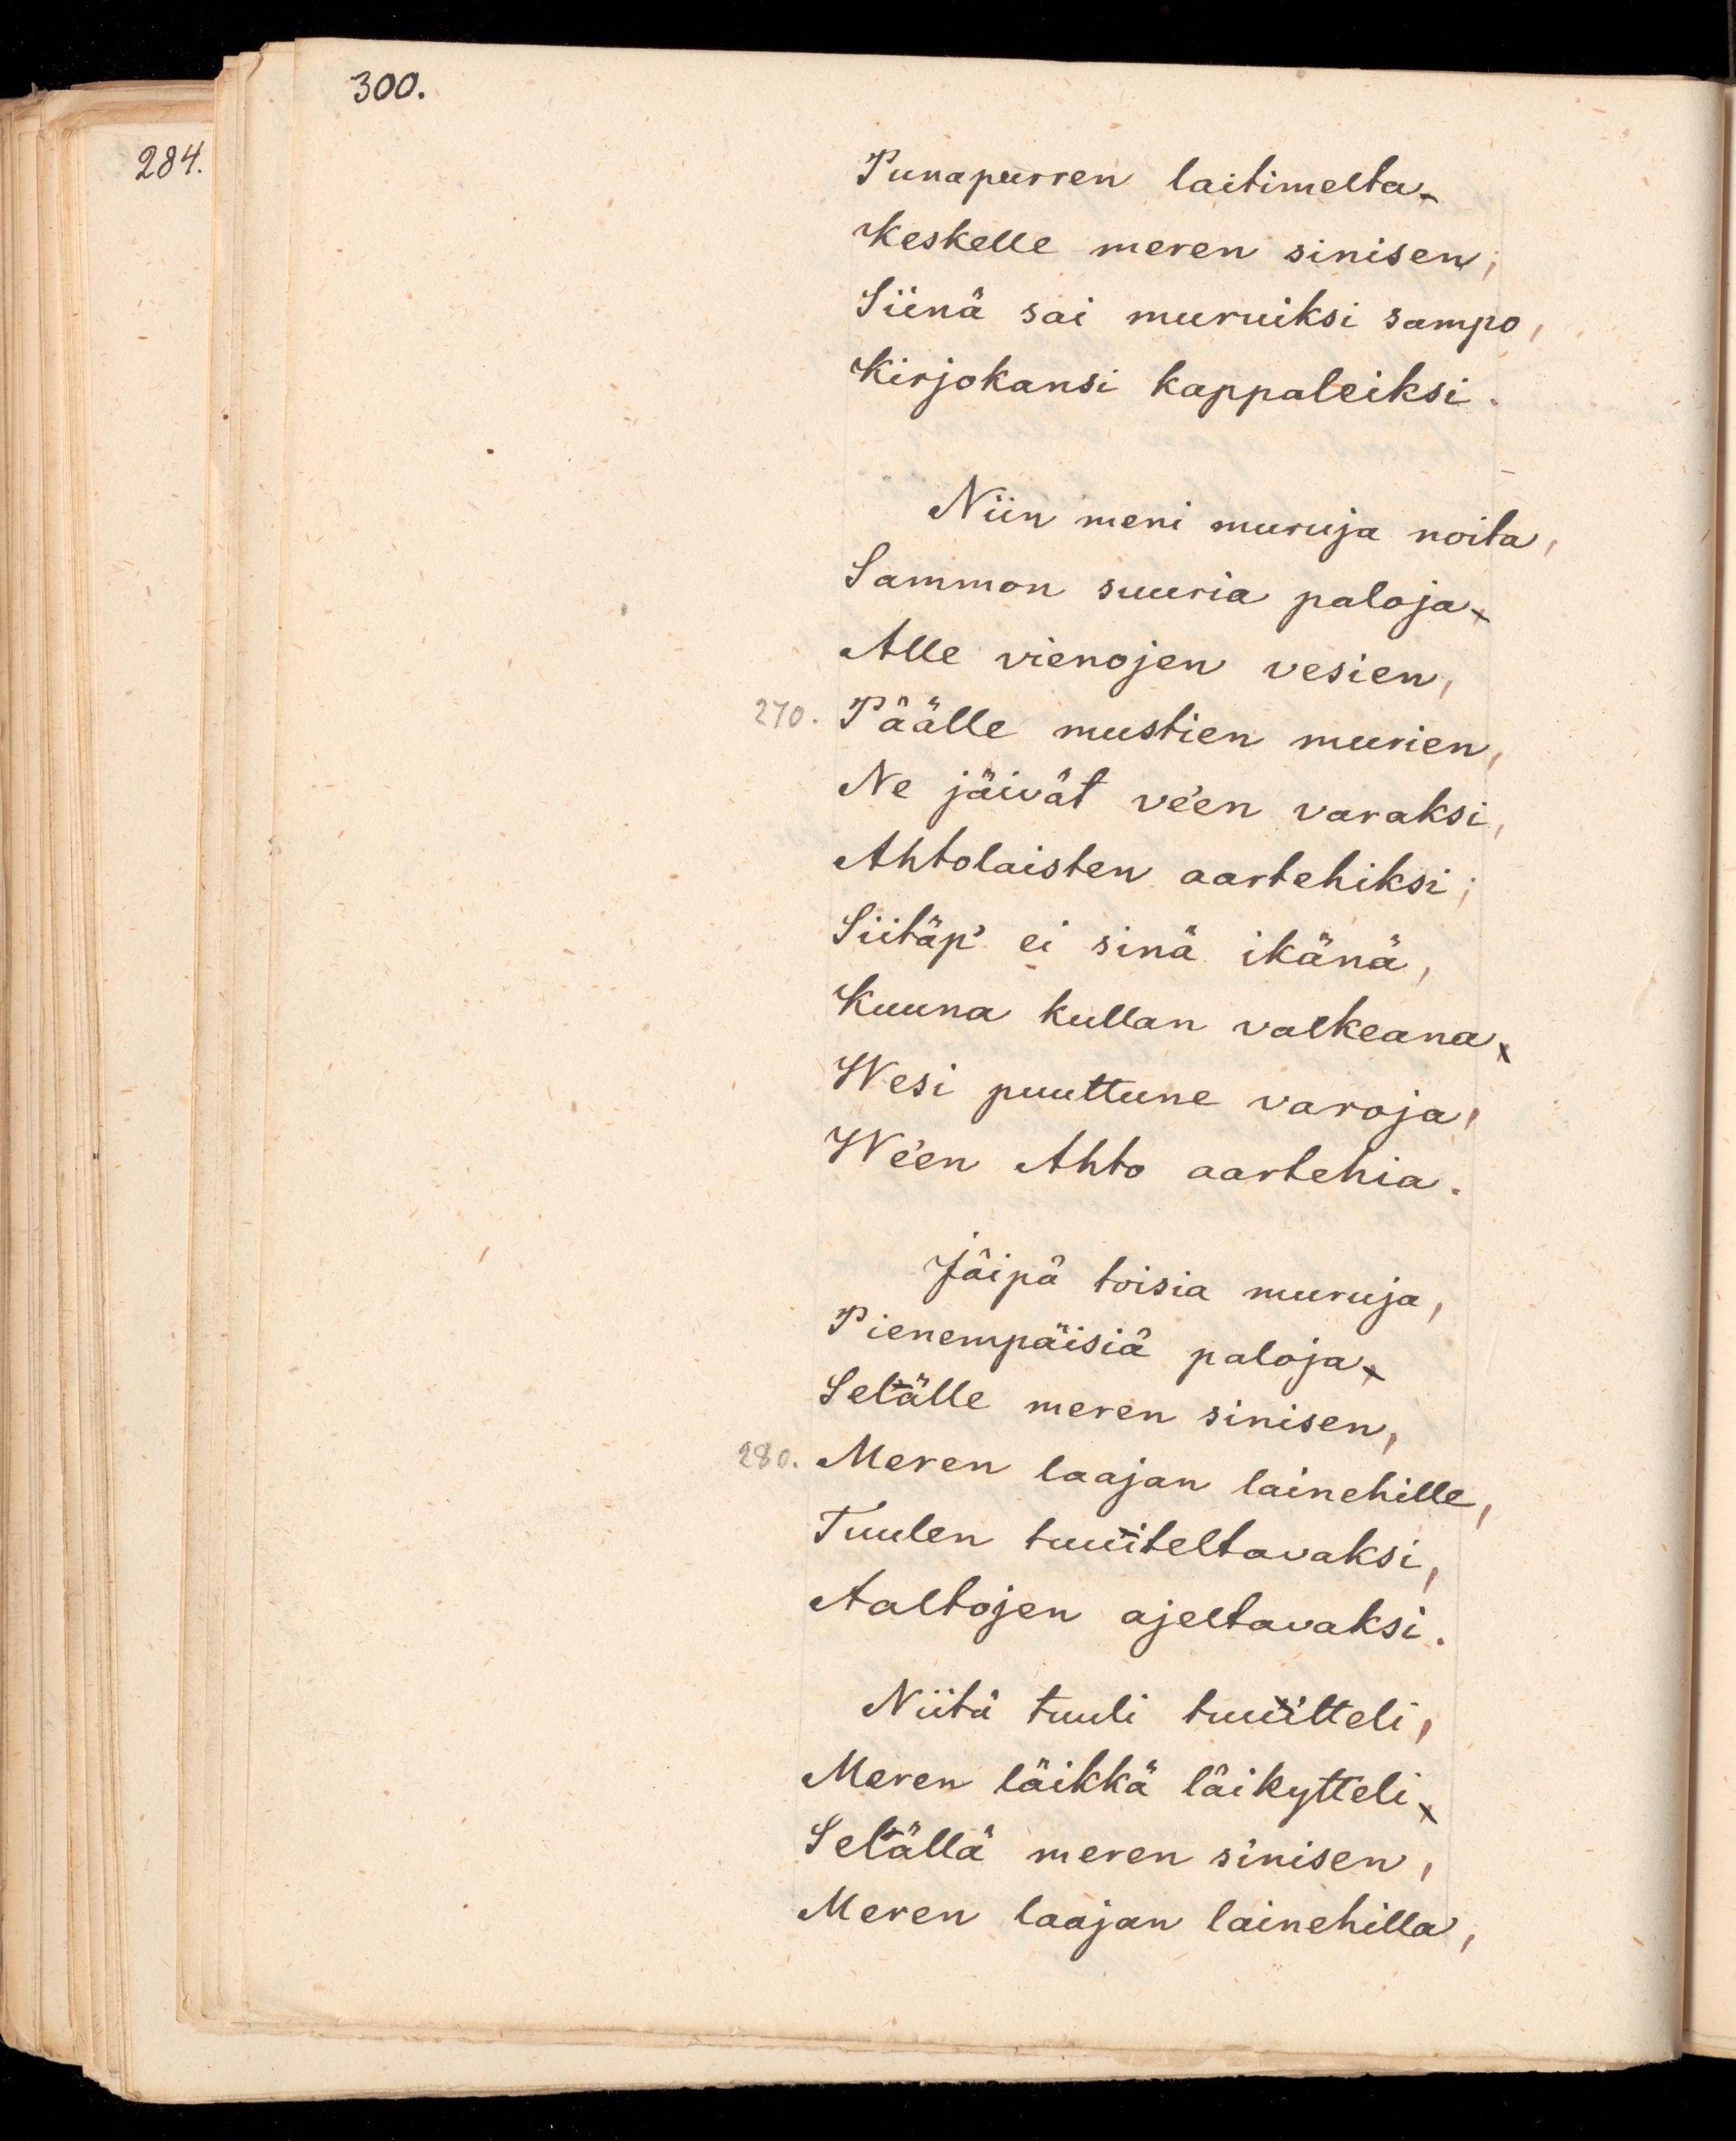 300.
284.
Punapurren laitimelta
Keskelle meren sinisen;
Siinä sai muruiksi sampo,
Kirjokansi kappaleiksi.
Niin meni muruja noita,
Sammon suuria paloja
Alle vienojen vesien,
270. Päälle mustien murien,
Ne jäivät ve'en varaksi,
Ahtolaisten aartehiksi;
Siitäp' ei sinä ikänä,
Kuuna kullan valkeana
Wesi puuttune varoja,
We'en Ahto aartehia.
Jäipä toisia muruja,
Pienempäisiä paloja
Selälle meren sinisen,
280. Meren laajan lainehille,
Tuulen tuuiteltavaksi,
Aaltojen ajeltavaksi.
Niitä tuuli tuuitteli,
Meren läikkä läikytteli
Selällä meren sinisen,
Meren laajan lainehilla,